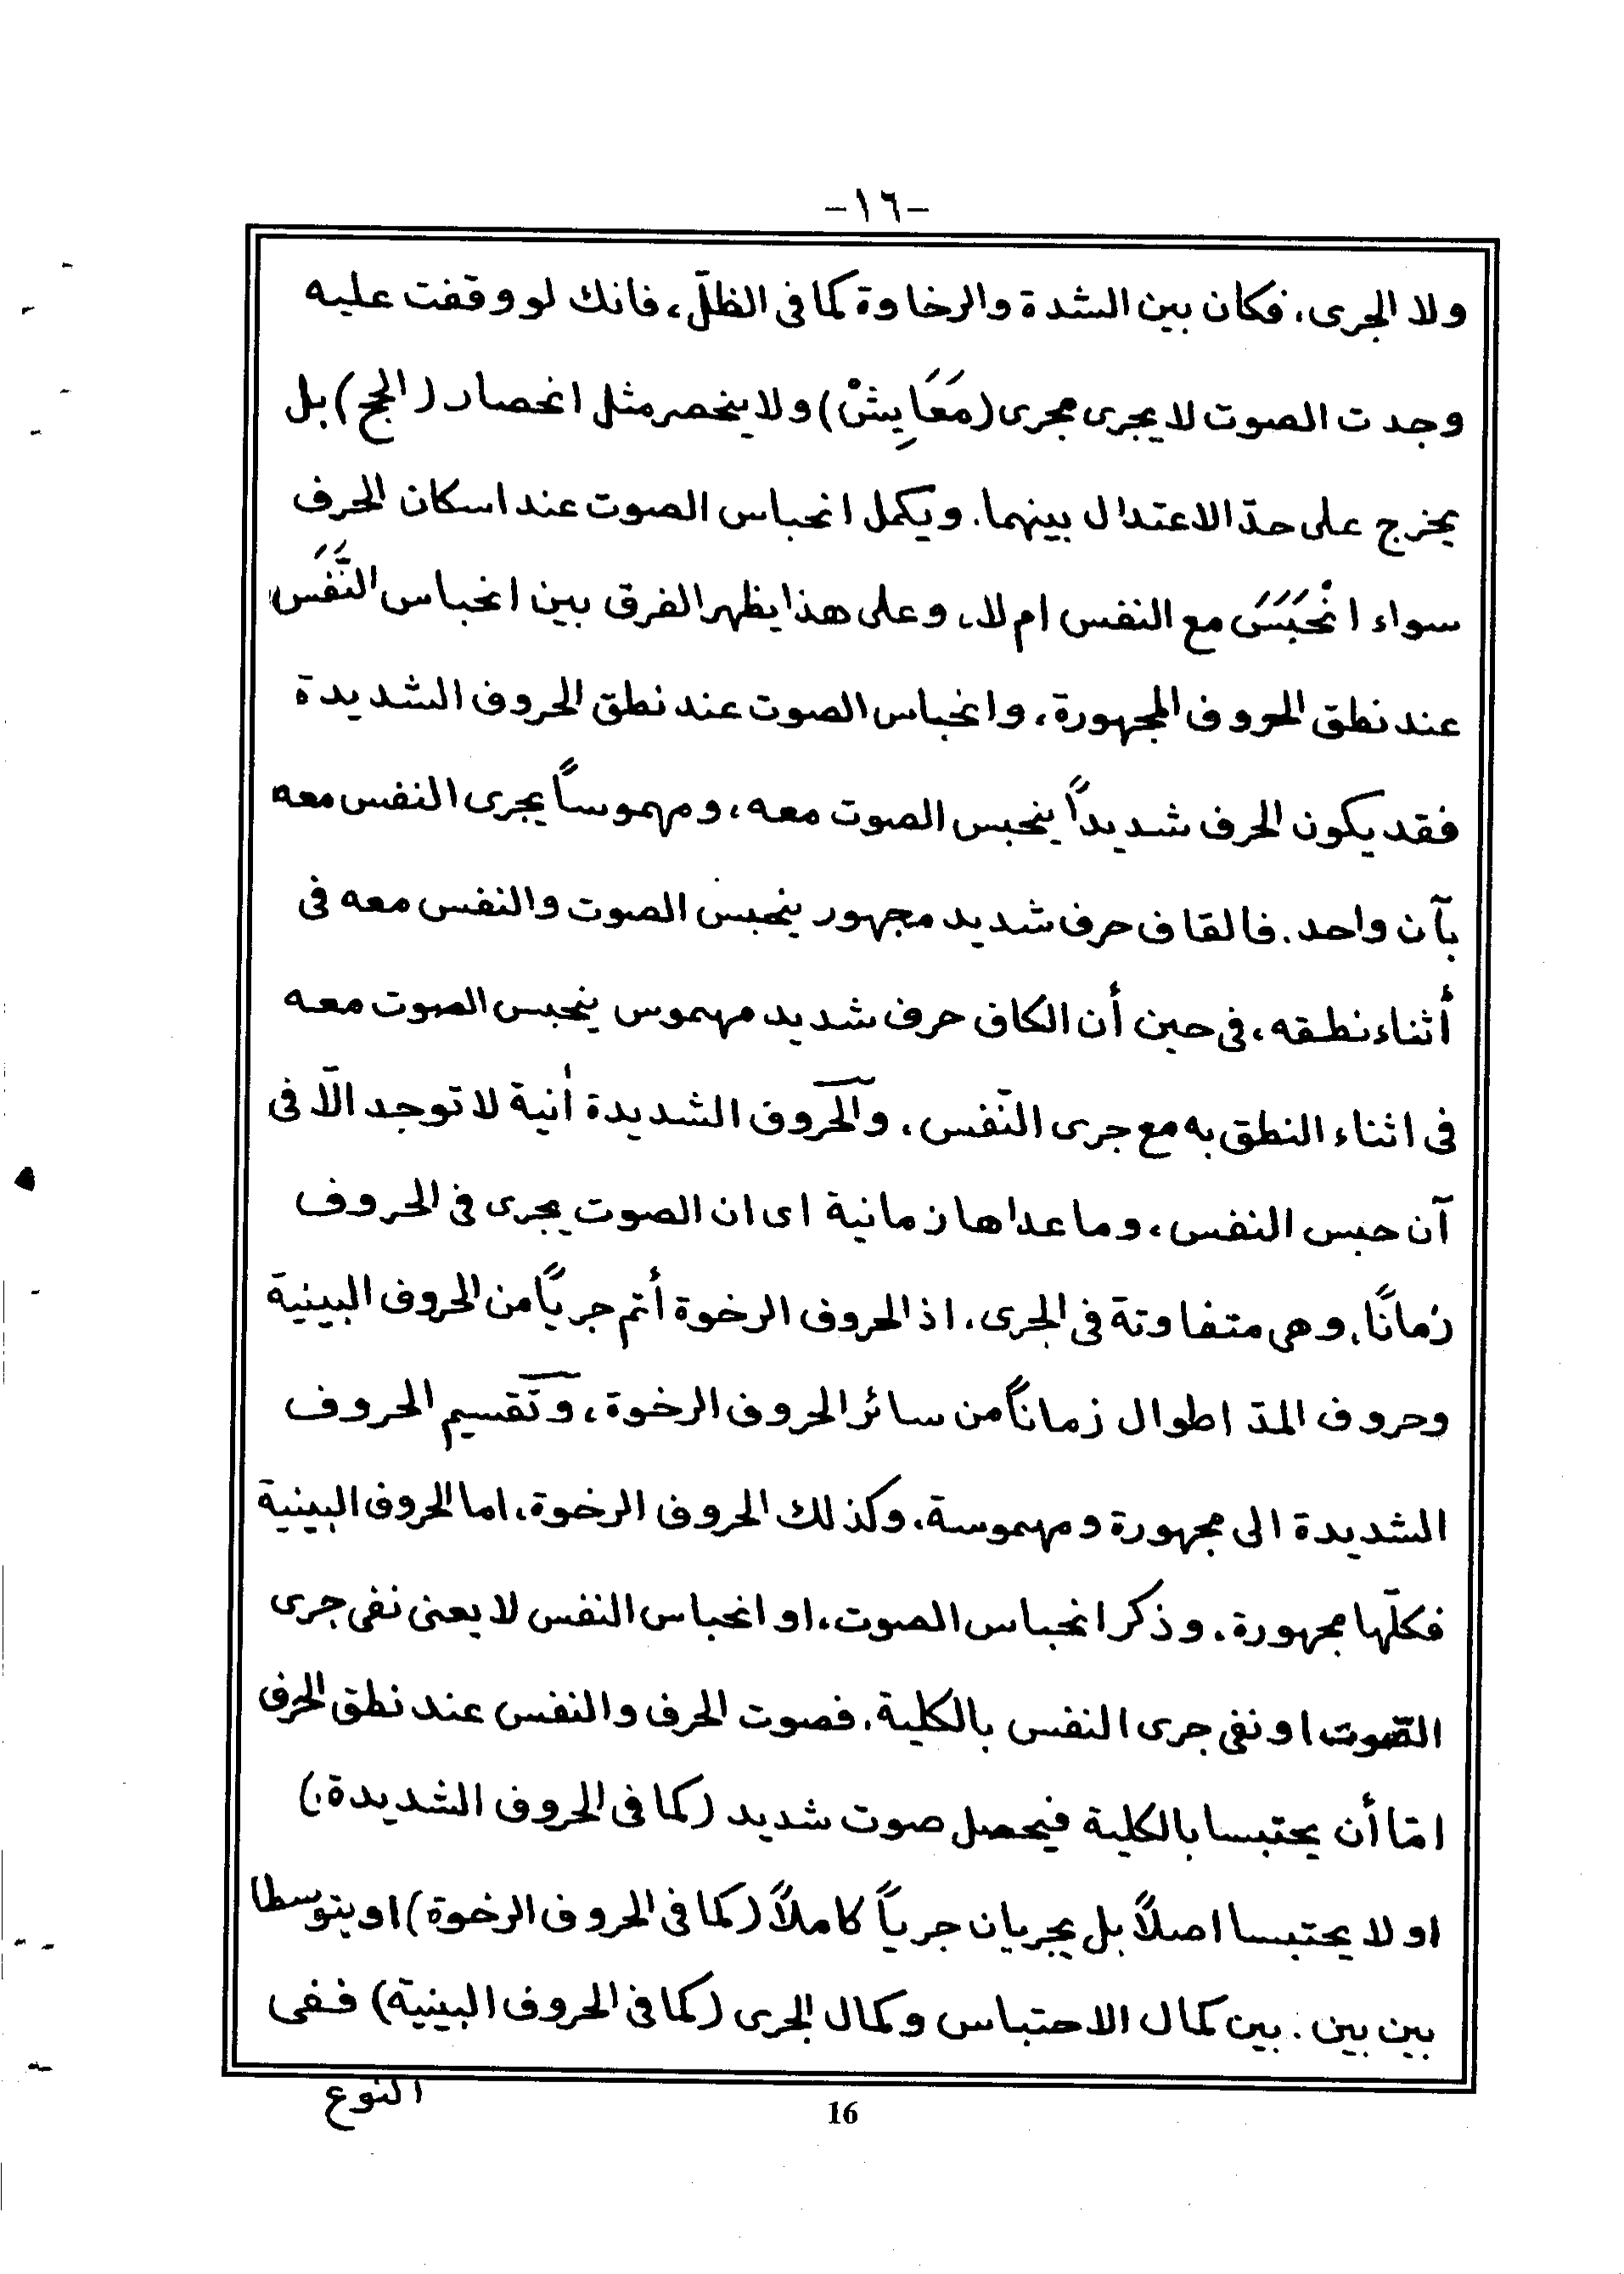 -١٦-
ولا الجرى، فكان بين الشدة والرخاوة كما فى الظلّ، فانك لو وقفت عليه
وجدت الصوت لا يجرى مجرى (مَعَايِشْ) ولا ينحصر مثل انحصار (الحج) بل
يخرج على حدّ الاعتدال بينهما. ويكمل انحباس الصوت عند اسكان الحرف
سواء انْحَبَسَ مع النفس ام لا، وعلى هذا يظهر الفرق بين انحباس النَّفَس
عند نطق الحروف المجهورة، وانحباس الصوت عند نطق الحروف الشديدة
فقد يكون الحرف شديداً ينحبس الصوت معه، ومهموساً يجرى النفس معه
بآن واحد. فالقاف حرف شديد مجهور ينحبس الصوت والنفس معه فى
أثناء نطقه، فى حين أن الكاف حرف شديد مهموس ينحبس الصوت معه
فى اثناء النطق به مع جرى النّفس. والحروف الشديدة أنية لا توجد الّا فى
آن حبس النفس، وما عداها زمانية اى ان الصوت يجرى فى الحروف
زمانًا، وهى متفاوتة فى الجرى، اذ الحروف الرخوة أتم جرياً من الحروف البينية
وحروف المدّ اطوال زماناً من سائر الحروف الرخوة، وتقسيم الحروف
الشديدة الى مجهورة ومهموسة، وكذلك الحروف الرخوة، اما الحروف البينية
فكلّها مجهورة. وذكر انحباس الصوت، او انحباس النفس لا يعنى نفى جرى
الصّوت او نفى جرى النفس بالكلية. فصوت الحرف والنفس عند نطق الحرف
امّا أن يحتبسا بالكلية فيحصل صوت شديد (كما فى الحروف الشديدة.)
او لا يحتبسا اصلاً بل يجريان جرياً كاملاً (كما فى الحروف الرخوة) او يتوسطا
بين بين: بين كمال الاحتباس وكمال الجرى (كما فى الحروف البينية) ففى
النوع
16